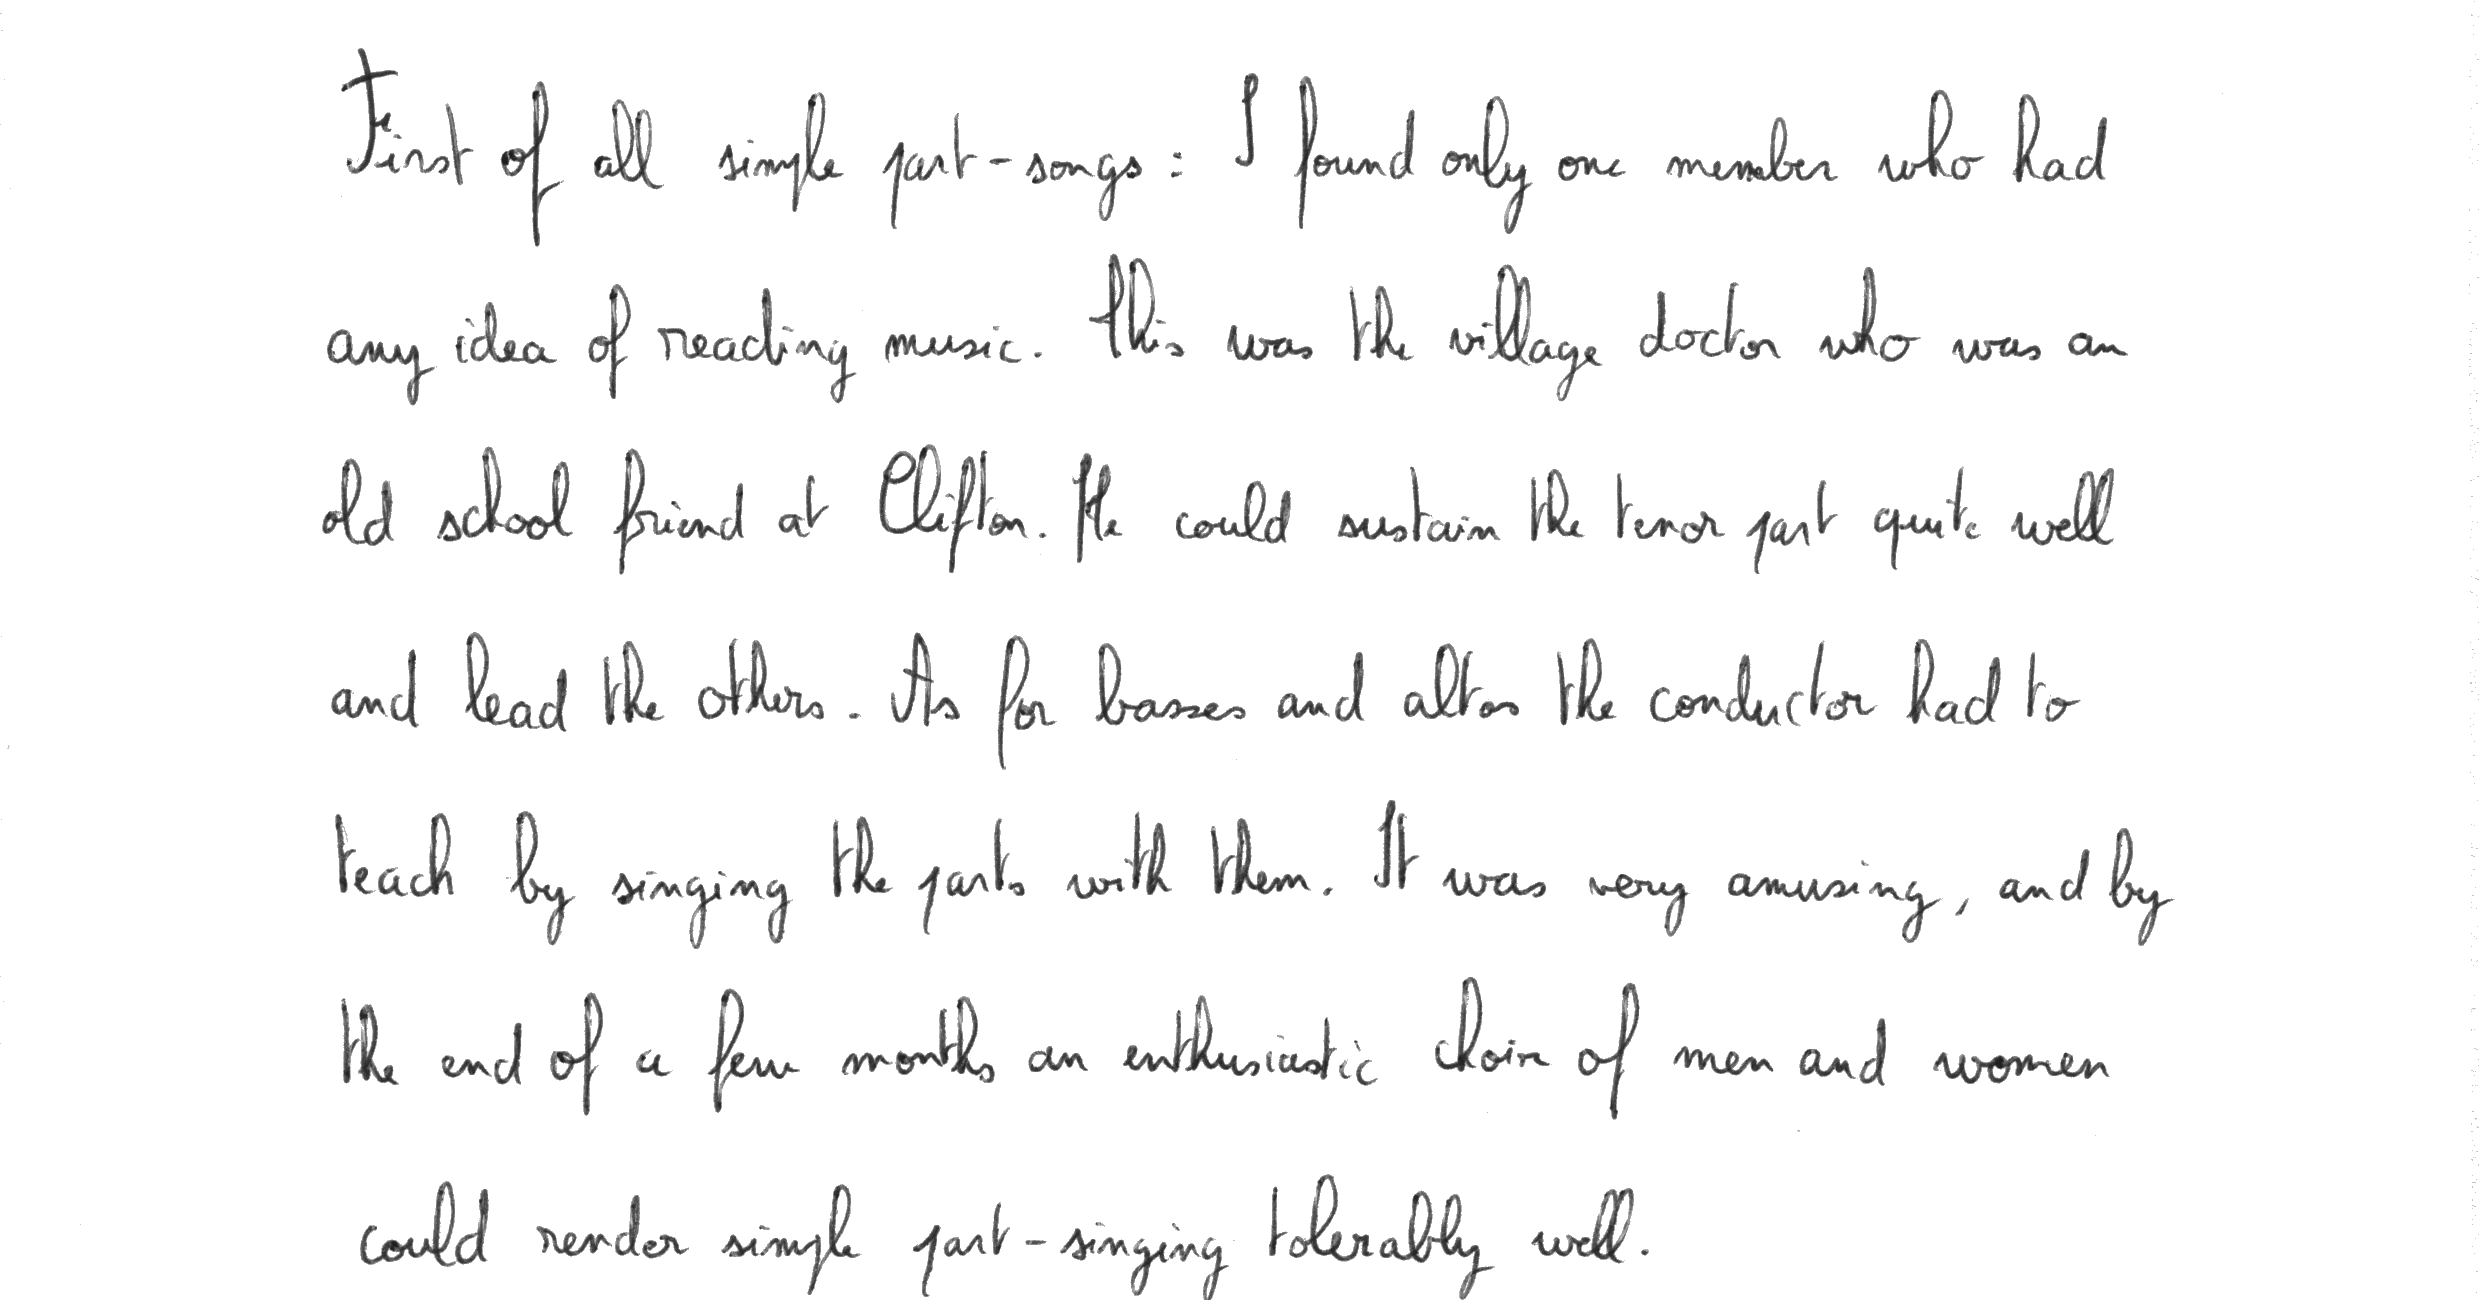 First of all simple part-songs : I found only one member who had
any idea of reading music. This was the village doctor who was an
old school friend at Clifton. He could sustain the tenor part quite well
and lead the others. As for basses and altos the conductor had to
teach by singing the parts with them. It was very amusing, and by
the end of a few months an enthusiastic choir of men and women
could render simple part-singing tolerably well.